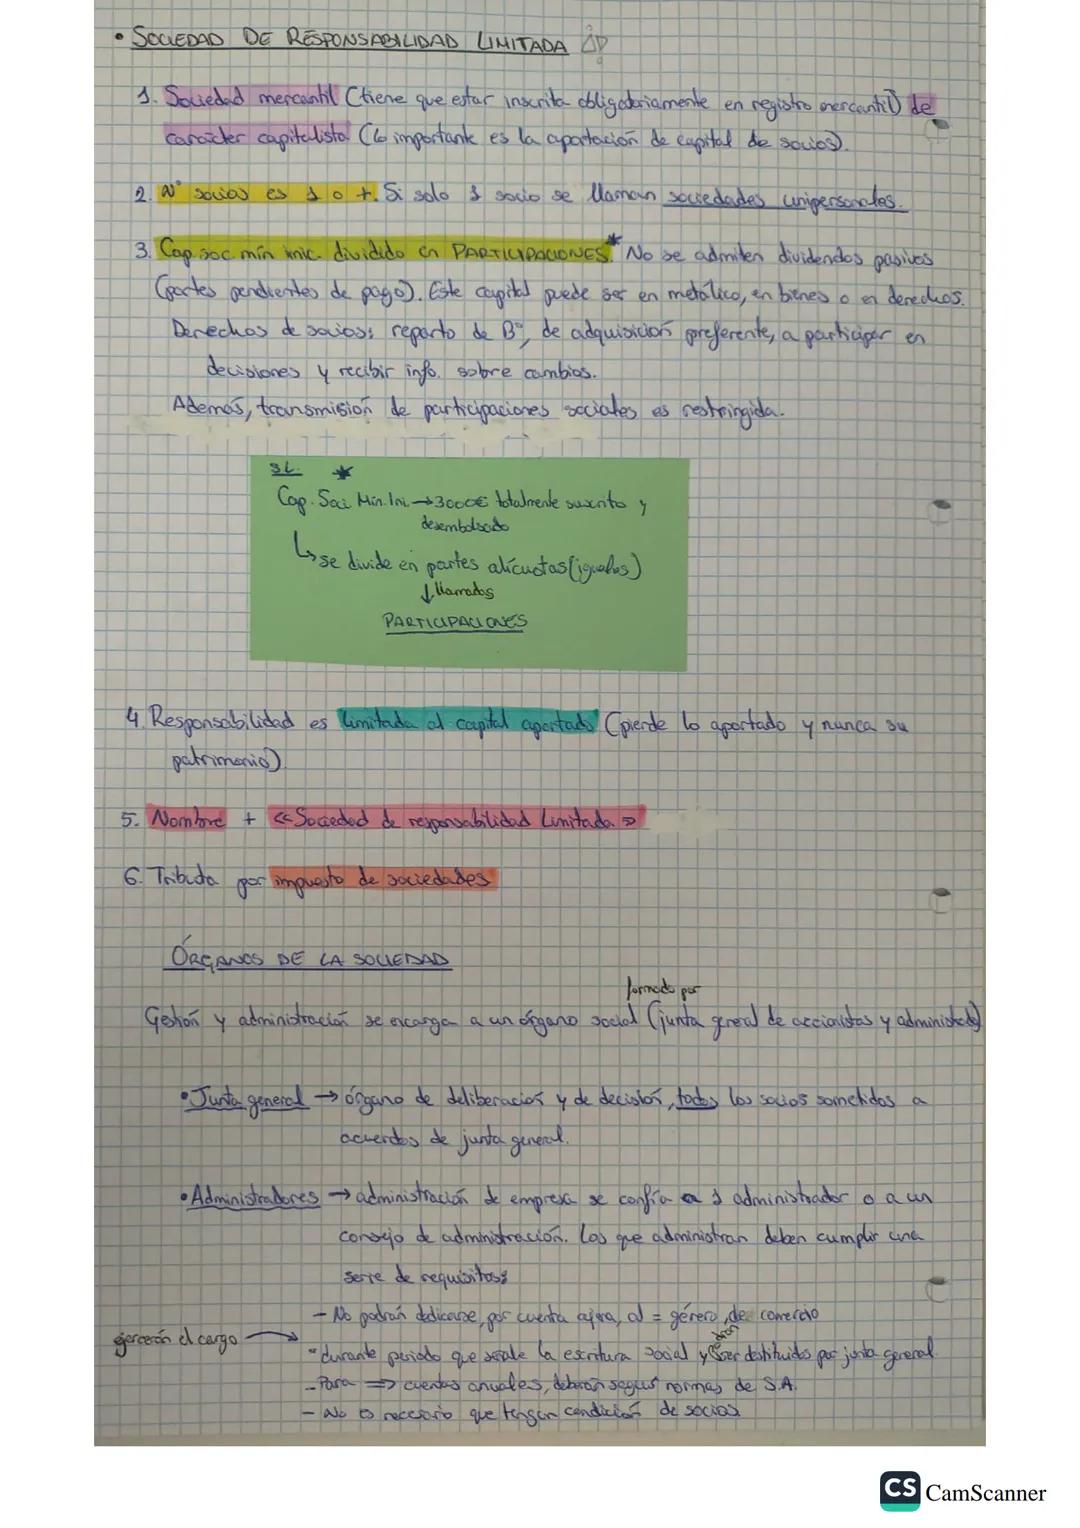 • SOCIEDAD DE RESPONSABILIDAD LIMITADA
1. Sociedad mercantil (tiene que estar inscrita obligatoriamente en registro mercantil) de
carácter capitalista (lo importante es la aportación de capital de socios).
2. Nº socios es 1 o +. Si solo 1 socio se llaman sociedades unipersonales.
3. Cap. soc. mín inic. dividido en PARTICIPACIONES.* No se admiten dividendos pasivos
(partes pendientes de pago). Este capital puede ser en metálico, en bienes o en derechos.
Derechos de socios: reparto de Bº, de adquisición preferente, a participar en
decisiones y recibir info. sobre cambios.
Además, transmisión de participaciones sociales es restringida.
SL. *
Cap. Soci Min. Ini. → 3000€ totalmente suscrito y
desembolsado
↳ se divide en partes alícuotas (iguales)
↓ llamados
PARTICIPACIONES
4. Responsabilidad es limitada al capital aportado (pierde lo aportado y nunca su
patrimonio).
5. Nombre + «Sociedad de responsabilidad Limitada»
6. Tributa por impuesto de sociedades
ÓRGANOS DE LA SOCIEDAD
formado por
Gestión y administración se encarga a un órgano social (junta general de accionistas y
• Junta general → órgano de deliberación y de decisión, todos los socios sometidos a
acuerdos de junta general.
• Administradores → administración de empresa se confía a 1 administrador o a un
consejo de administración. Los que administran deben cumplir una
serie de requisitos:
- No podrán dedicarse, por cuenta ajena, al = género de comercio
ejercerán el cargo → - durante periodo que señale la escritura social y podrán ser destituidos por junta general
- Para ⇒ cuentas anuales, deberán seguir normas de S.A.
- No es necesario que tengan condición de socios
CS CamScanner